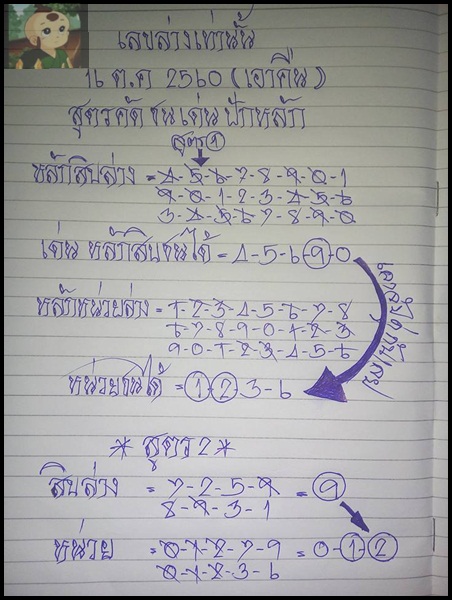 เลขล่างเท่านั้น
16 ต.ค 2560 (เอาคืน)
สูตรคัด ชนเด่น ปักหลัก
สูตร 1
หลักสิบล่าง = 4-5-6-7-8-9-0-1
9-0-1-2-3-4-5-6
3-4-5-6-7-8-9-0
เด่น หลักสิบชนได้ = 4-5-6-9-0
หลักหน่วยล่าง = 1-2-3-4-5-6-7-8
6-7-8-9-0-1-2-3
9-0-1-2-3-4-5-6
หน่วยได้ = 1 2 3-6
* สูตร 2 *
สิบล่าง = 7-2-5-9 = 9
8-9-3-1
หน่วย = 0-1-2-7-9 = 0-1-2
0-1-2-3-6